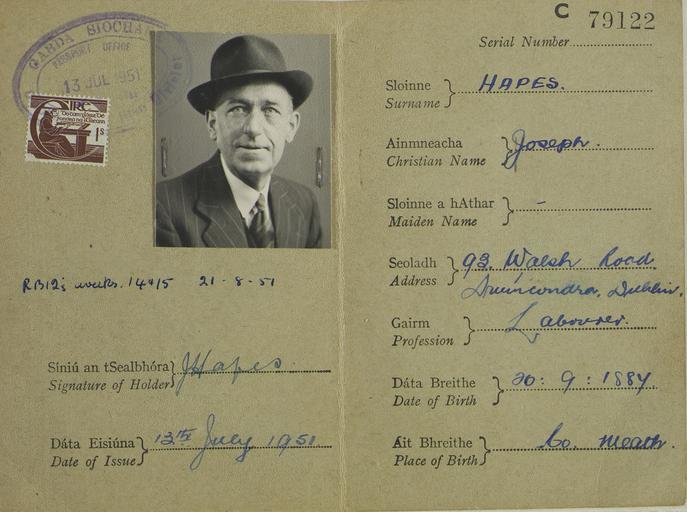 GARDA SIOCHA
PASSPORT OFFICE
13 JUL 1951
1s
RB12; weeks. 14%5 21-8-51
Síniú an tSealbhóra
Signature of Holder JHapes.
Dáta Eisiúna
Date of Issue 13th July 1951
C 79122
Serial Number
Sloinne
Surname HAPES.
Ainmneacha
Christian Name Joseph.
Sloinne a hAthar
Maiden Name -
Seoladh
Address 93, Walsh Road
Drumcondra, Dublin.
Gairm
Profession Labourer.
Dáta Breithe
Date of Birth 20: 9: 1887.
Áit Bhreithe
Place of Birth Co. Meath.